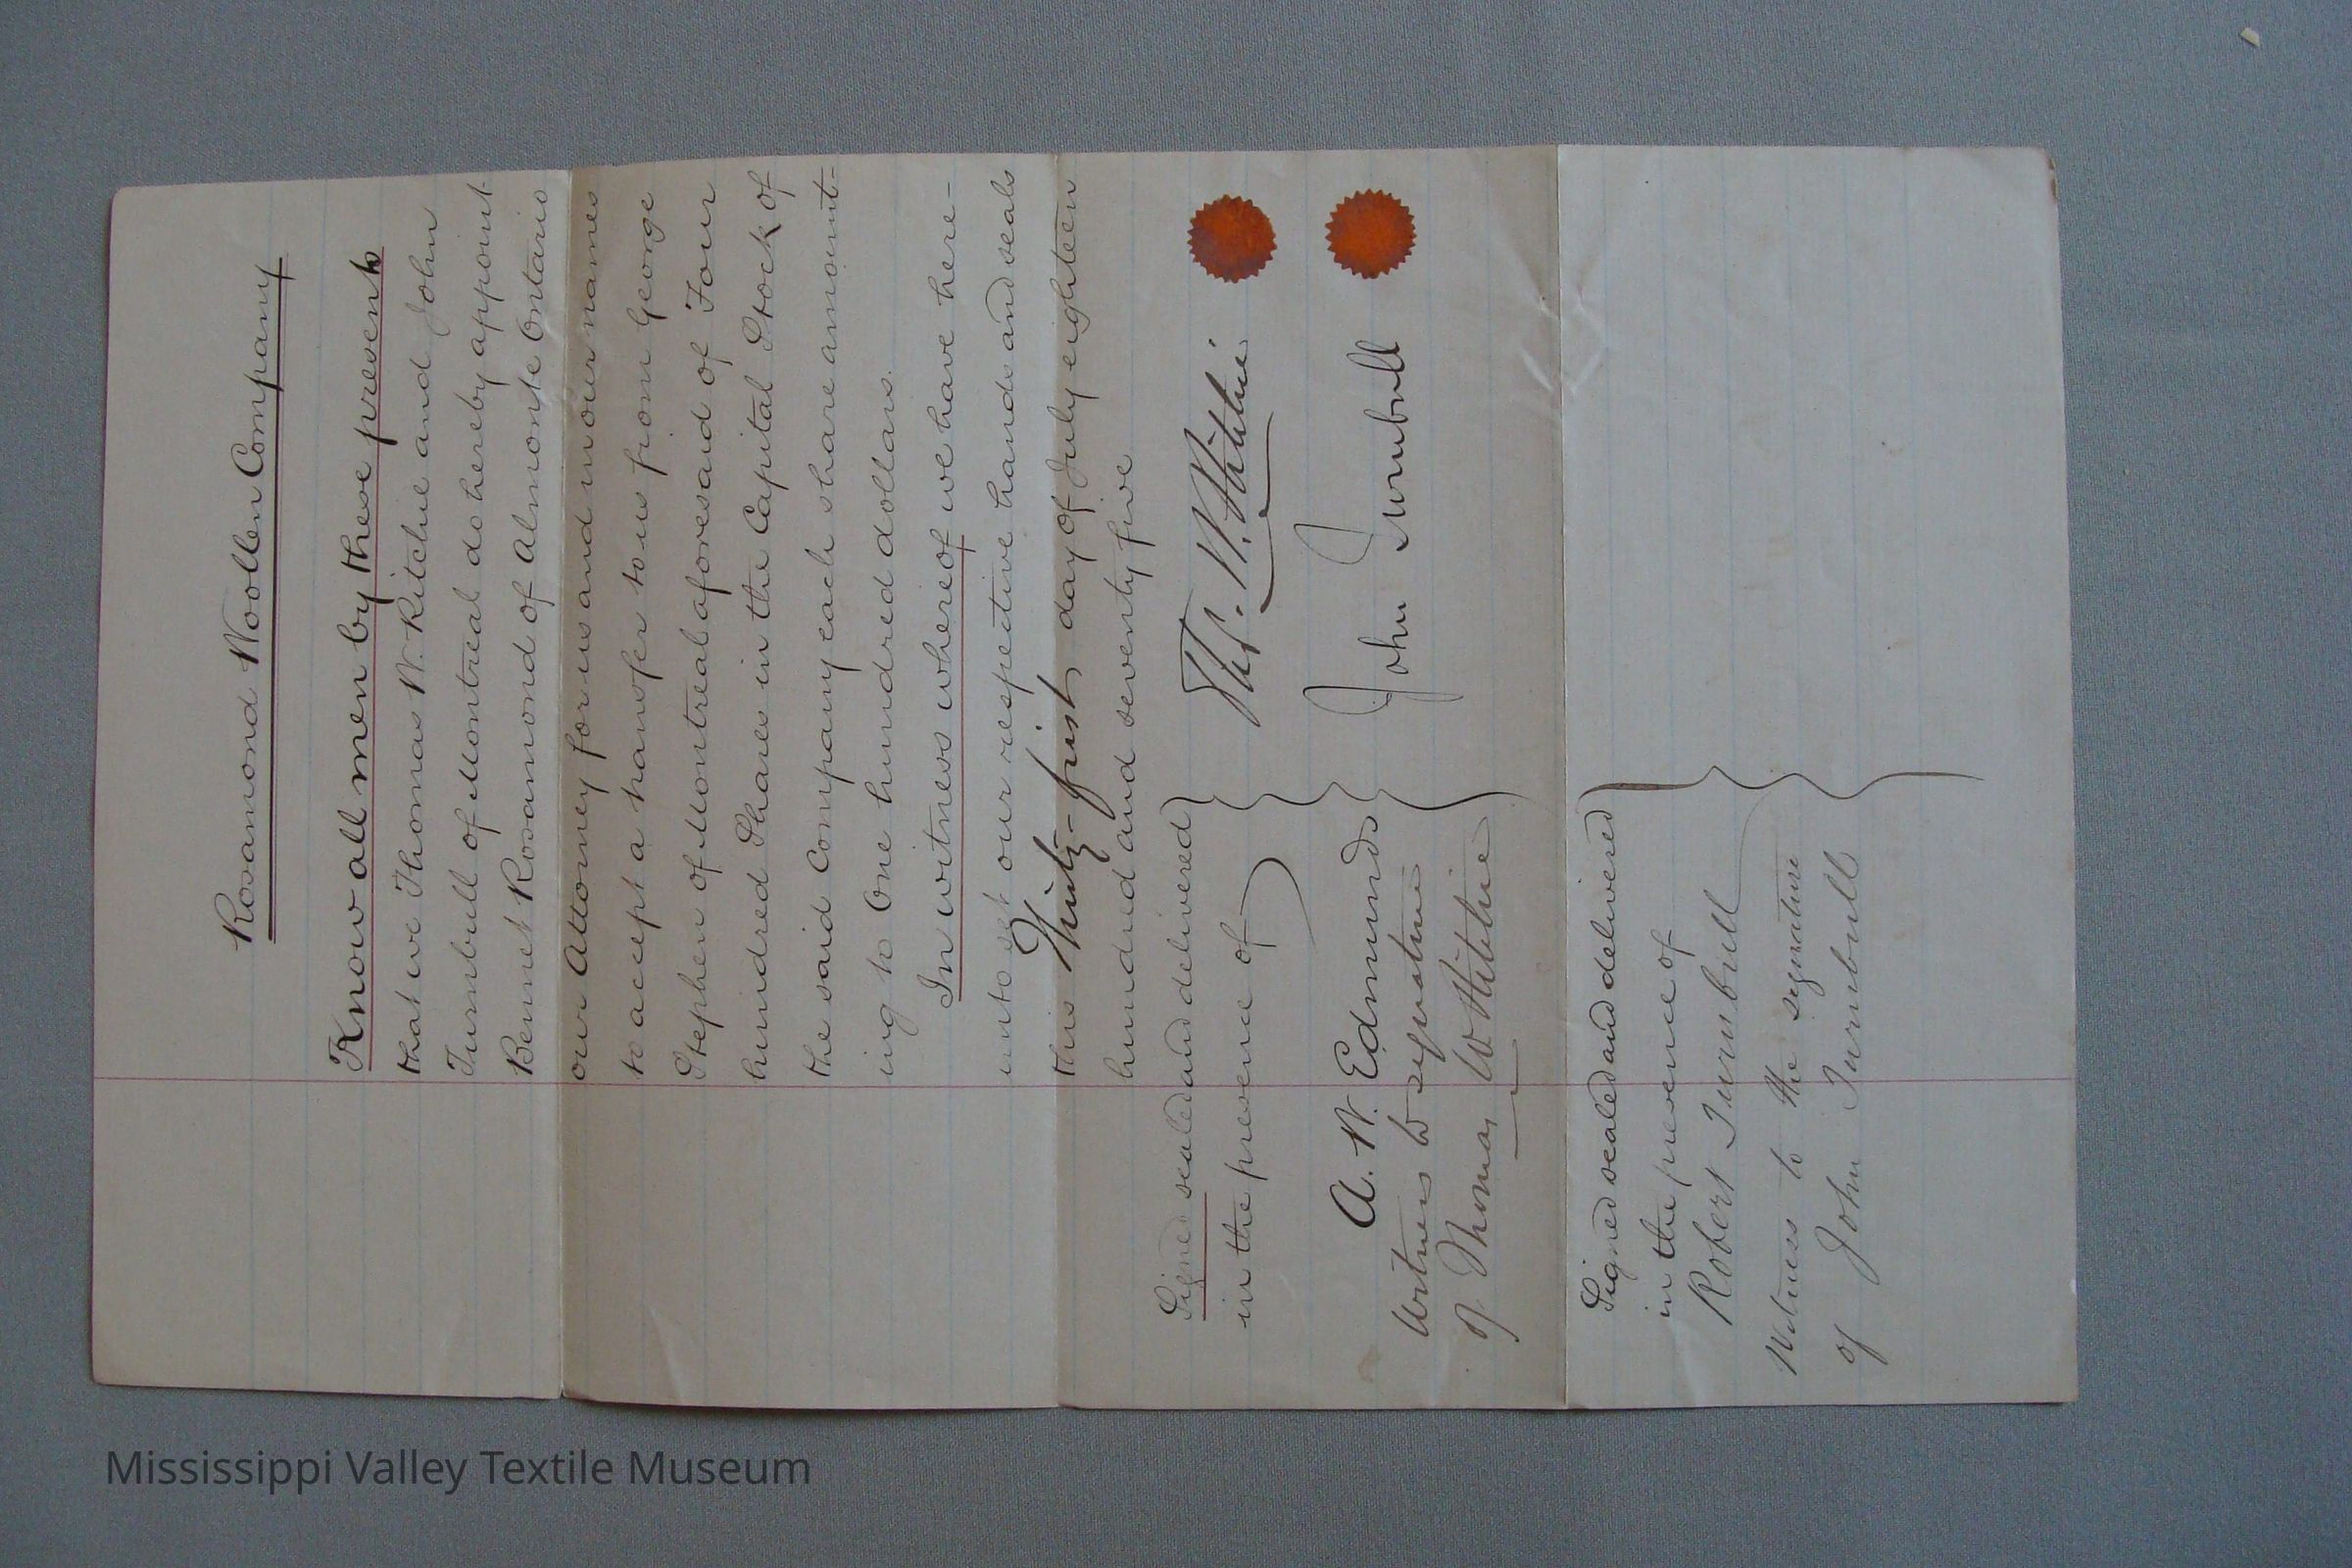 Rosamond Woollen Company
Know all men by these presents
that we Thomas W. Ritchie and John
Turnbull of Montreal do hereby appoint
Bennet Rosamond of Almonte Ontario
our Attorney for us and in our names
to accept a transfer to us from George
Stephen of Montreal aforesaid of Four
hundred Shares in the Capital Stock of
the said Company each share amount-
ing to One hundred dollars.
In witness whereof we have here-
unto set our respective hands and seals
this Thirty-first day of July eighteen
hundred and seventy five
Signed sealed and delivered
in the presence of
Thos. W. Ritchie
A. W. Edmunds
John Turnbull
Witness to signature
of Thomas W Ritchie
Signed sealed and delivered
in the presence of
Robert Turnbull
Witness to the signature
of John Turnbull
Mississippi Valley Textile Museum